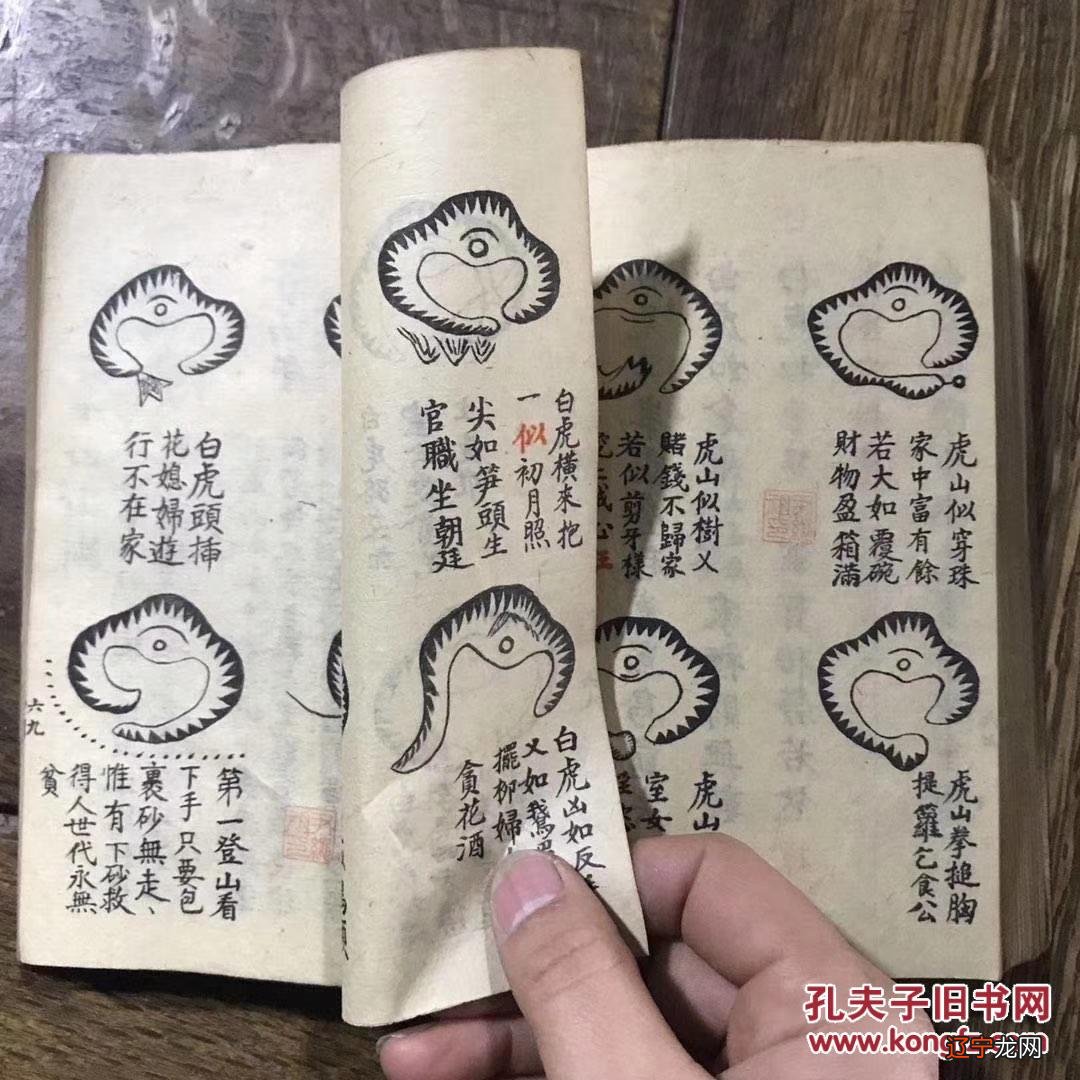 虎山似穿珠
家中富有餘
若大如覆碗
財物盈箱滿
虎山拳搥胸
提籮乞食公
虎山似樹乂
賭錢不歸家
若似剪刀樣
虎山
室女
白虎橫來抱
一似初月照
尖如笋頭生
官職坐朝廷
白虎凶如反
又如鵝
擺柳婦
貪花酒
白虎頭插
花媳婦遊
行不在家
第一登山看
下手只要包
裹砂無走、
惟有下砂救
得人世代永無
貧
六九
孔夫子旧书网
www.kongfz.com
辽宁龙网